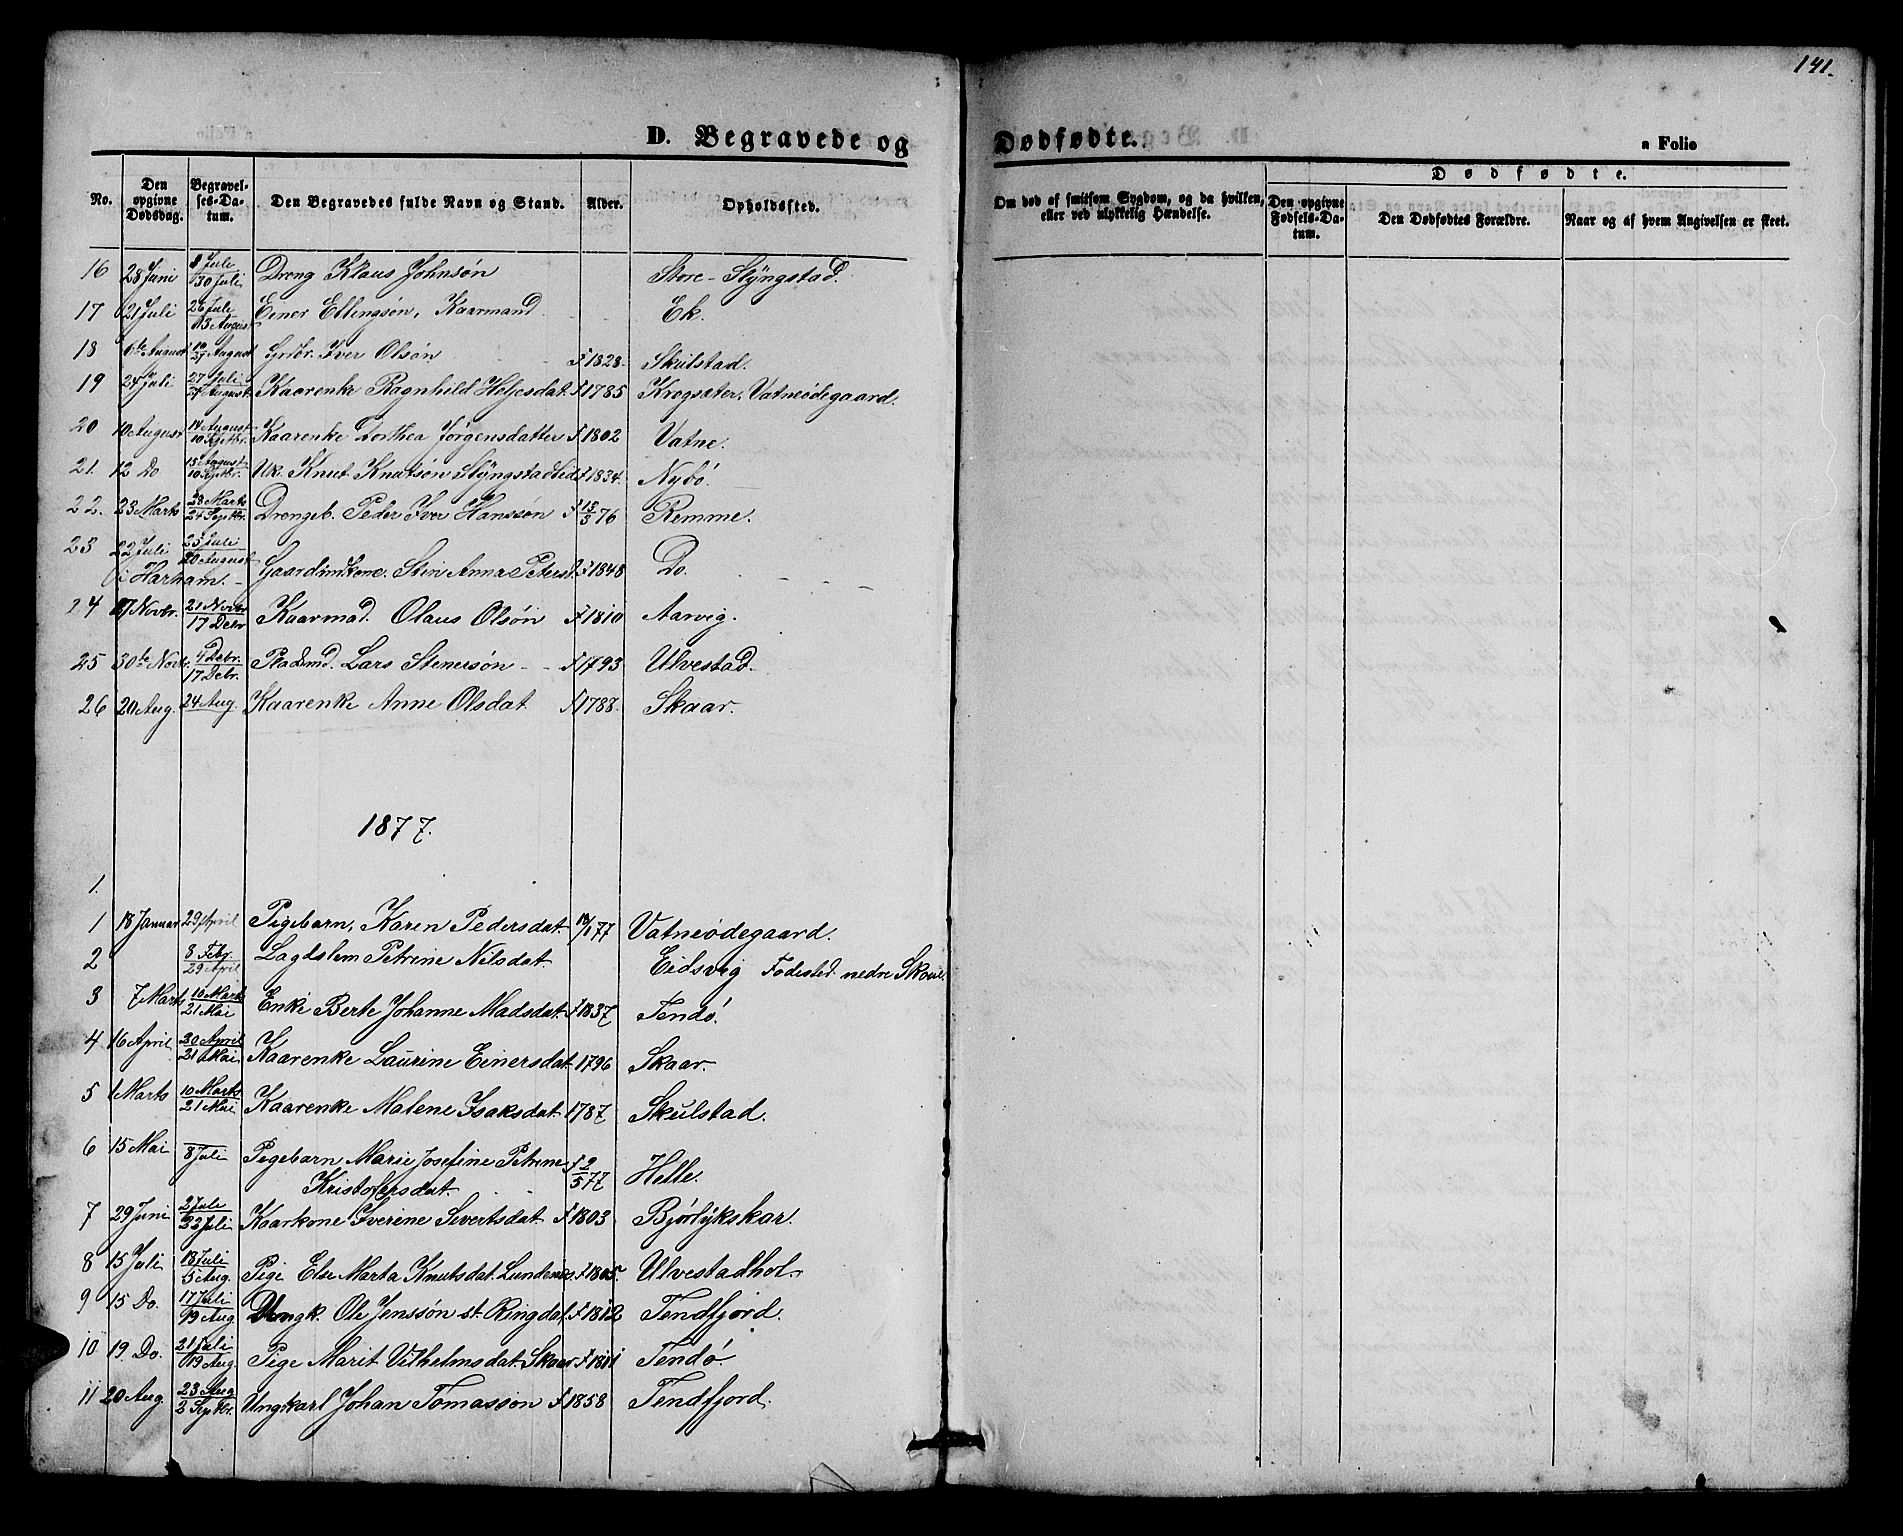 141.
D. Begravede og Dødfødte.
a Folio
No.
Den opgivne Dødsdag.
Begravelses-Datum.
Den Begravedes fulde Navn og Stand.
Alder.
Opholdssted.
Om død af smitsom Sygdom, og da hvilken, eller ved ulykkelig Hændelse.
Dødfødte.
Den opgivne Fødsels-Datum.
Den Dødfødtes Forældre.
Naar og af hvem Angivelsen er skeet.
16 28 Juni Juli 30 Juli Dreng Klaus Johnsøn Store-Slÿngstad.
17 21 Juli 26 Juli 13 August Einer Ellingsøn, Kaarmand Ek.
18 6te August 10 27 August Grdbr. Iver Olsøn f 1828. Skulstad.
19 24 Juli 27 Juli 27 August Kaarenke Ragnhild Holjesdat. f 1785 Krogsæter, Vatneødegaard.
20 10 August 14 August 10 Septbr. Kaarenke Dorthea Jørgensdatter f 1802 Vatne.
21. 12 Do 15 August 10 Septbr. Uk. Knut Knutsøn Slÿngstadlid f 1834. Nybø.
22. 23 Marts 28 Marts 24 Septbr. Drengeb. Peder Iver Hanssøn f 13/3 76 Remme.
23 22 Juli 25 Juli 20 August
i Harham. - Gaardmkone. Stin Anna Petersd. f 1848 Do.
24 17 Novbr. 21 Novbr 17 Debr Kaarmad. Olaus Olsøn f 1810 Aarvig.
25 30te Novbr. 4 Debr. 17 Debr. Pladsmd. Lars Stenersøn - - f 1793 Ulvestad.
26 20 Aug. 24 Aug. Kaarenke Anne Olsdat. f 1788. Skaar.
1877.
1.
1 18 Januar 29 April Pigebarn, Karen Pedersdat. 18/1 77 Vatneødegaard.
2 8 Feby. 29 April Lagdslem Petrine Nilsdat. Eidsvig Fødested nedre
3 7 Marts 10 Marts 21 Mai Enke Berte Johanne Madsdat. f 1837 Tendø.
4 16 April 20 April 21 Mai Kaarenke Laurine Einersdat 1796 Skaar.
5 1 Marts 10 Marts 21 Mai Kaarenke Malene Isaksdat. 1787 Skulstad.
6 15 Mai 8 Juli Pigebarn Marie Josefine Petrine f 2/5 77 Helle.
Kristofersdat.
7 29 Juni 2 Juli 22 Juli Kaarkone Iverine Sivertsdat. f 1803 Bjørlÿkskar.
8 15 Juli 18 Juli 5 Aug. Pige Else Marta Knutsdat. Lundenes f 1805. Ulvestadhol.
9 15 Do. 17 Juli 19 Aug Ungk. Ole Jenssøn st. Ringdal f 1812 Tendfjord.
10 19 Do. 21 Juli 19 Aug Pige Marit Vilhelmsdat. Skaar f 1811 Tendø
11 20 Aug. 23 Aug 2 Septbr. Ungkarl Johan Tomassøn f 1858 Tendfjord.